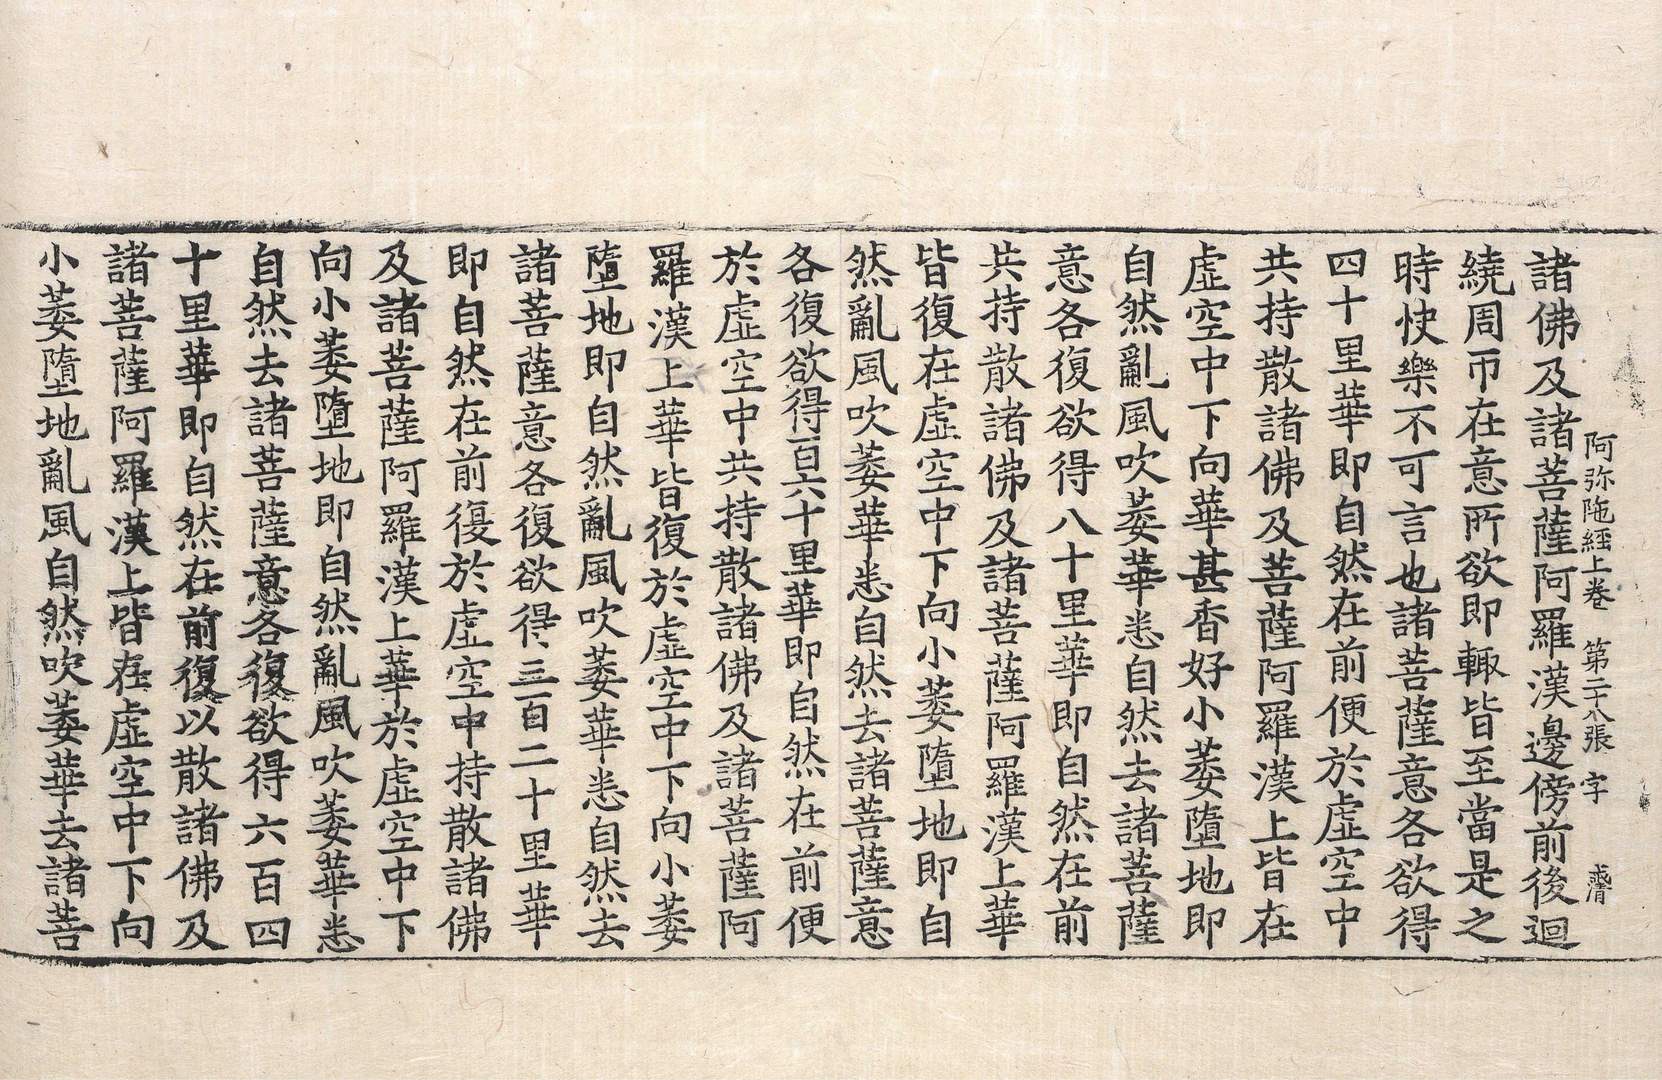 阿弥陁經上卷　第二十八張　字
諸佛及諸菩薩阿羅漢邊傍前後迴
繞周帀在意所欲即輙皆至當是之
時快樂不可言也諸菩薩意各欲得
四十里華即自然在前便於虛空中
共持散諸佛及菩薩阿羅漢上皆在
虛空中下向華甚香好小萎墮地即
自然亂風吹萎華悉自然去諸菩薩
意各復欲得八十里華即自然在前
共持散諸佛及諸菩薩阿羅漢上華
皆復在虛空中下向小萎墮地即自
然亂風吹萎華悉自然去諸菩薩意
各復欲得百六十里華即自然在前便
於虛空中共持散諸佛及諸菩薩阿
羅漢上華皆復於虛空中下向小萎
墮地即自然亂風吹萎華悉自然去
諸菩薩意各復欲得三百二十里華
即自然在前復於虛空中持散諸佛
及諸菩薩阿羅漢上華於虛空中下
向小萎墮地即自然亂風吹萎華悉
自然去諸菩薩意各復欲得六百四
十里華即自然在前復以散諸佛及
諸菩薩阿羅漢上皆在虛空中下向
小萎墮地亂風自然吹萎華去諸菩